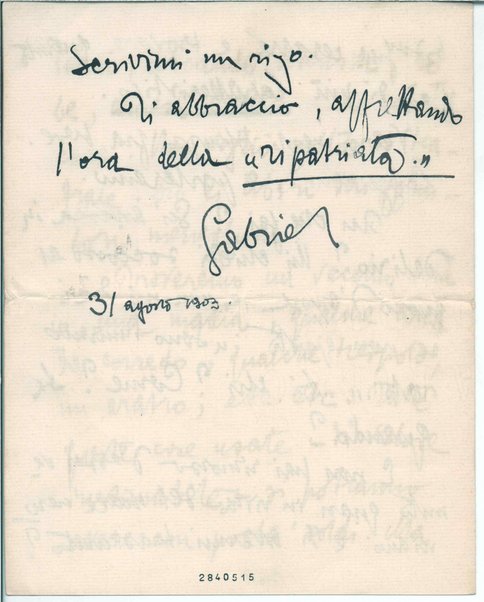 Scrivimi un rigo.
Ti abbraccio, affrettando
l'ora della "ripatriata."
Gabriel
31 agosto 1903.
2840515